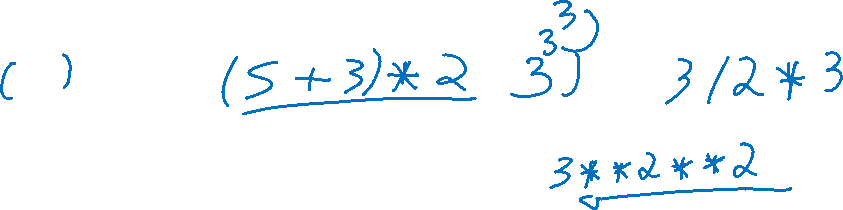 ( ) (5+3)*2 3^3^3 3/2*3
3**2**2